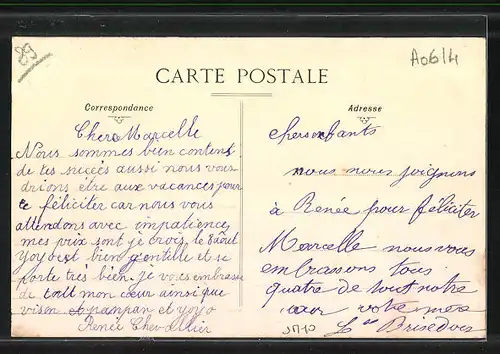 89
A06/4
CARTE POSTALE
Correspondance
Adresse
Chere Marcelle
Nous sommes bien content
de tes succés aussi nous vou
drions être aux vacances pour
te féliciter car nous vous
attendons avec impatience
mes prix sont je crois le
Yoyo est bien gentille et se
porte très bien je vous embrasse
de tout mon cœur ainsi que
panpan et yoyo
Renée
chers enfants
nous nous joignons
à Renée pour féliciter
Marcelle nous vous
embrassons tous
quatre de tout notre
cœur votre mère
Brisedous